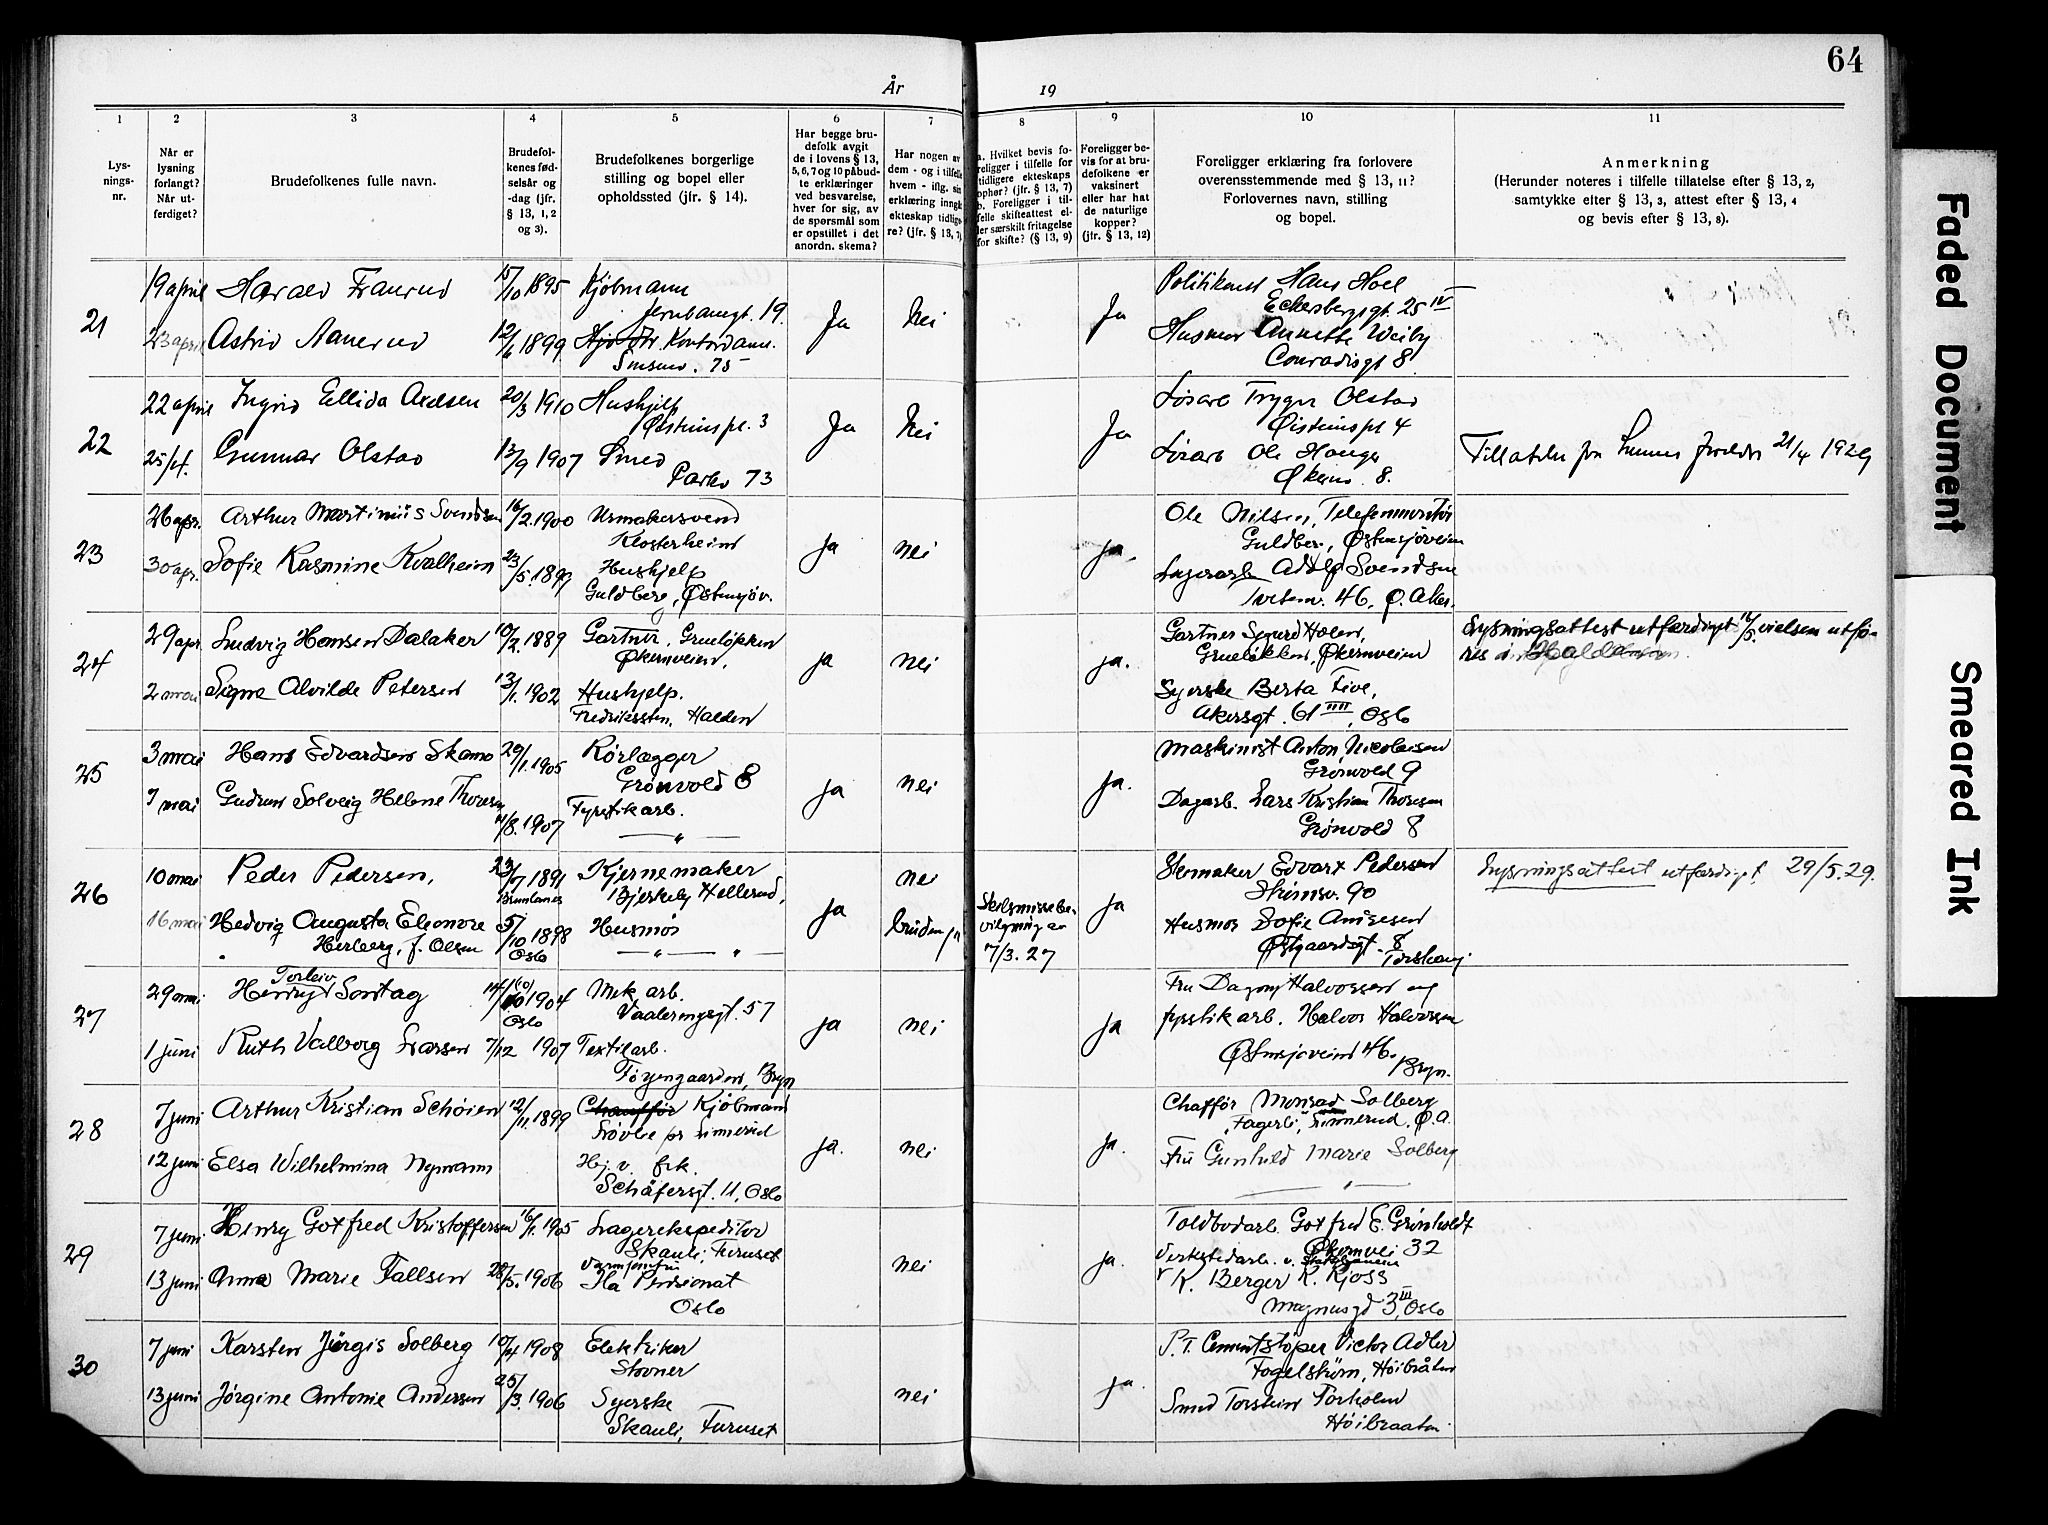 64
År 19
1 2 3 4 5 6 7 8 9 10 11
Lys-
nings-
nr.
Når er
lysning
forlangt?
Når ut-
ferdiget?
Brudefolkenes fulle navn.
Brudefol-
kenes fød-
selsår og
-dag (jfr.
§ 13, 1, 2
og 3).
Brudefolkenes borgerlige
stilling og bopel eller
opholdssted (jfr. § 14).
Har begge bru-
defolk avgit
de i lovens § 13,
5, 6, 7 og 10 påbud-
te erklæringer
ved besvarelse,
hver for sig, av
de spørsmål som
er opstillet i det
anordn. skema?
Har nogen av
dem - og i tilfelle
hvem - iflg. sin
erklæring inngått
ekteskap tidlige-
re? (jfr. § 13, 7)
a. Hvilket bevis fo-
religger i tilfelle for
tidligere ekteskaps
ophør? (jfr. § 13, 7)
b. Foreligger i til-
felle skifteattest el-
ler særskilt fritagelse
for skifte? (§ 13, 9)
Foreligger be-
vis for at bru-
defolkene er
vaksinert
eller har hat
de naturlige
kopper?
(jfr. § 13, 12)
Foreligger erklæring fra forlovere
overensstemmende med § 13, 11?
Forlovernes navn, stilling
og bopel.
Anmerkning
(Herunder noteres i tilfelle tillatelse efter § 13, 2,
samtykke efter § 13, 3, attest efter § 13, 4
og bevis efter § 13, 8).
21
19 april Harald 15/10 1895 Kjøbmann
19.
23 april Astrid Aanerud 12/6 1899 Kontordame.
75
Ja Nei Ja
Hans Hoel
Eckersbergsgt. 25 IV
Husmor Annette Weiby
Conradisgt 8
22
22 april Ingrid Ellida Axelsen 20/3 1910 Hushjelp
Østensjøv. 3
25/4. Gunnar Olstad 13/9 1907 Smed
Parkv 73
Ja Nei Ja
Trygve Olstad
4
Ole Hauger
8.
Tillatelse fra 21/4 1929
23
26 apr. Arthur Martinius Svendsen 16/2.1900 Urmakersvend
Klosterheim
30 apr. Sofie Rasmine Kvalheim 23/5.1893 Hushjelp
Guldberg, Østensjøv.
Ja nei ja.
Ole Nilsen, Telefonmontør
Guldberg, Østensjøveien
Lagerarb. Adolf Svendsen
46. Ø. Aker.
24
29 apr. Ludvig Hansen Dalaker 10/2.1889 Gartner, Grueløkken
Økernveien,
2 mai Signe Alvilde Petersen 13/1.1902 Hushjelp.
Fredriksten, Halden
ja nei ja.
Gartner Sigurd Holen,
Grueløkken, Økernveien
Syerske Berta Five,
Akersgt. 61 IIII, Oslo
Lysningsattest utfærdiget /5. vielsen utfø-
res i Halden.
25
3 mai Hans Edvardsen Skamo 29/1.1905 Rørlegger
Grønvold 8
7 mai Gudrun Solveig Helene Thoresen 11/8.1907 Fyrstikarb.
— „ —
ja nei ja.
Maskinist Anton Nicolaisen
Grønvold 9
Dagarb. Lars Kristian Thoresen
Grønvold 8
26
10 mai Peder Pedersen, 23/7 1891 Kjernemaker
Brunlanes Bjerkely Hellerud,
16 mai Hedvig Augusta Eleonore 5/10 1898 Husmor
Herberg, f. Olsen Oslo — „ — „ —
ja nei
bruden ja
Skilsmissebe-
vilgning av
7/3.27
ja
Skomaker Edvart Pedersen
90
Husmor Sofie
Østgaardsgt. 8
Torshaug
Lysningsattest utfærdiget 29/5.29.
27
Torleiv
29 mai Henry Sontag 14/10 (10) 1904 Mek. arb.
Oslo Vaalerenggt. 57
1 juni Ruth Valborg Larsen 7/12 1907 Textilarb.
Tøyengaarden, Bryn
ja nei ja
Fru Dagny Halvorsen og
fyrstikarb. Halvor Halvorsen
Østensjøveien 46.
Bryn.
28
7 juni Arthur Kristian Schøien 12/11.1899 Chauffør Kjøbmand
12 juni Elsa Wilhelmina Nymann Hj. v. frk.
Schäfersgt. 11, Oslo
ja. nei ja.
Chaffør Monrad Solberg
„Fagerli", Linnerud, Ø.A.
Fru Gunhild Marie Solberg
— „ —
29
7 juni Henry Gotfred Kristoffersen 16/1.1905 Lagerekspeditør
Skauli, Furuset
13 juni Anna Marie Fallsen 28/5.1906
Ila Pensionat
Oslo
nei ja.
Toldbodarb. Gotfred E. Grønholdt
Økernvei 32
Verkstedarb. v. Statsbanene
K. Berger K. Kjoss
Magnusgd 3 III, Oslo
30
7 juni Karsten Jørgis Solberg 10/4 1908 Elektriker
Stovner
13 juni Jørgine Antonie Andersen 25/3.1906 Syerske
Skauli, Furuset
nei ja.
P.T. Cementstøper Victor Adler
Fogelstrøm, Høibråten
Smed Torstein Torholm
Høibraaten
Faded Document
Smeared Ink